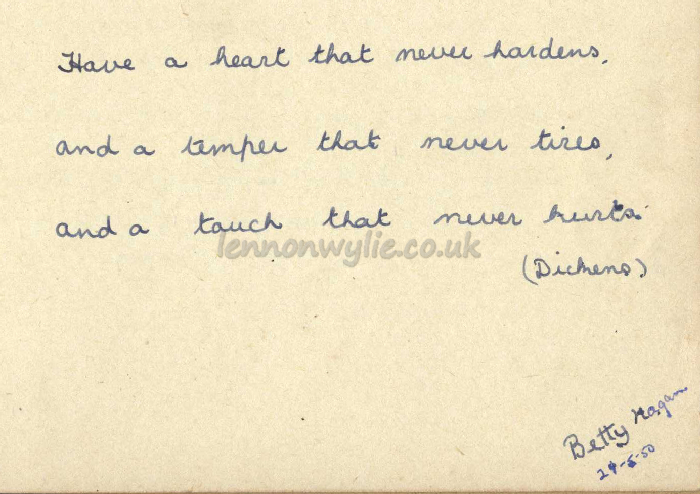 Have a heart that never hardens,
and a temper that never tires,
and a touch that never hurts.
lennonwylie.co.uk
(Dickens)
Betty Hagan
24-5-50